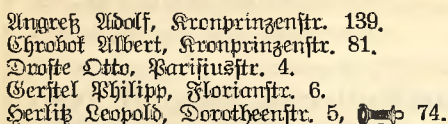 Angreß Adolf, Kronprinzenstr. 139.
Chrobok Albert, Kronprinzenstr. 81.
Droste Otto, Parisiusstr. 4.
Gerstel Philipp, Florianstr. 6.
Herlitz Leopold, Dorotheenstr. 5, 74.